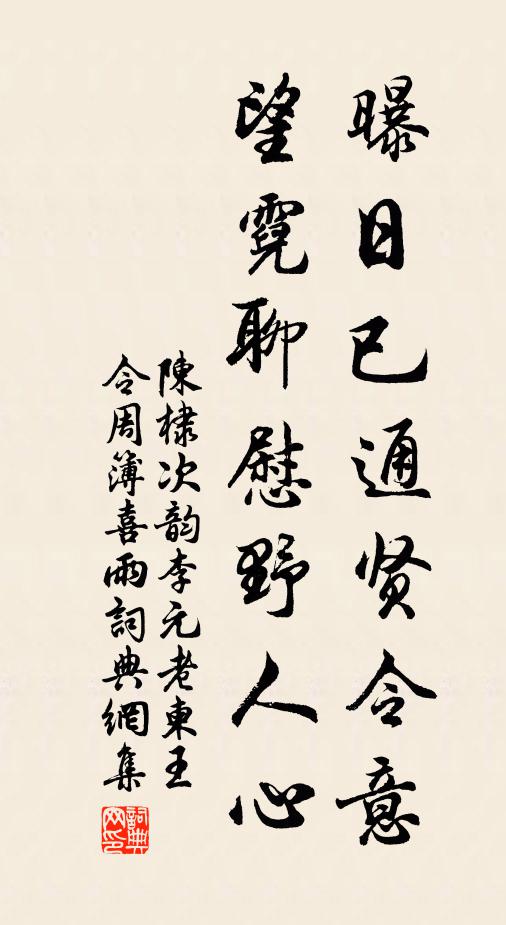 曝日已通贤令意
望霓聊慰野人心
陳棣次韵李元老東王
令周簿喜雨詞典網集
詞典網印